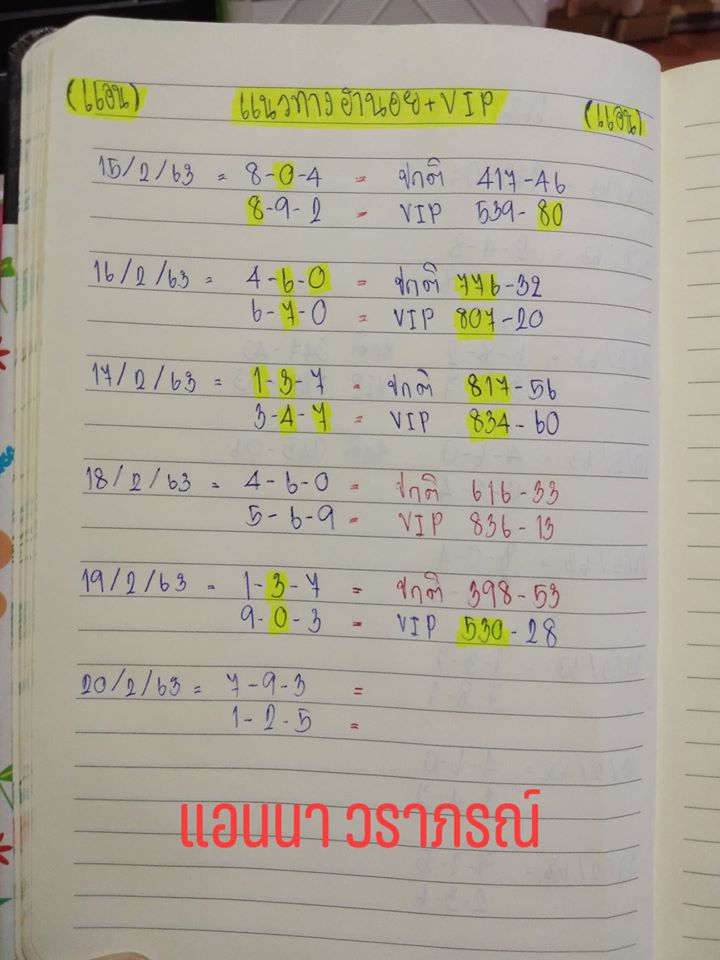 (แอน) แนวทางฮานอย+VIP (แอน)
15/2/63 = 8-0-4 = ปกติ 417-46
8-9-2 = VIP 539-80
16/2/63 = 4-6-0 = ปกติ 776-32
6-7-0 = VIP 807-20
17/2/63 = 1-3-7 = ปกติ 817-56
3-4-7 = VIP 834-60
18/2/63 = 4-6-0 = ปกติ 616-33
5-6-9 = VIP 836-13
19/2/63 = 1-3-7 = ปกติ 398-53
9-0-3 = VIP 530-28
20/2/63 = 7-9-3 =
1-2-5 =
แอนนา วราภรณ์